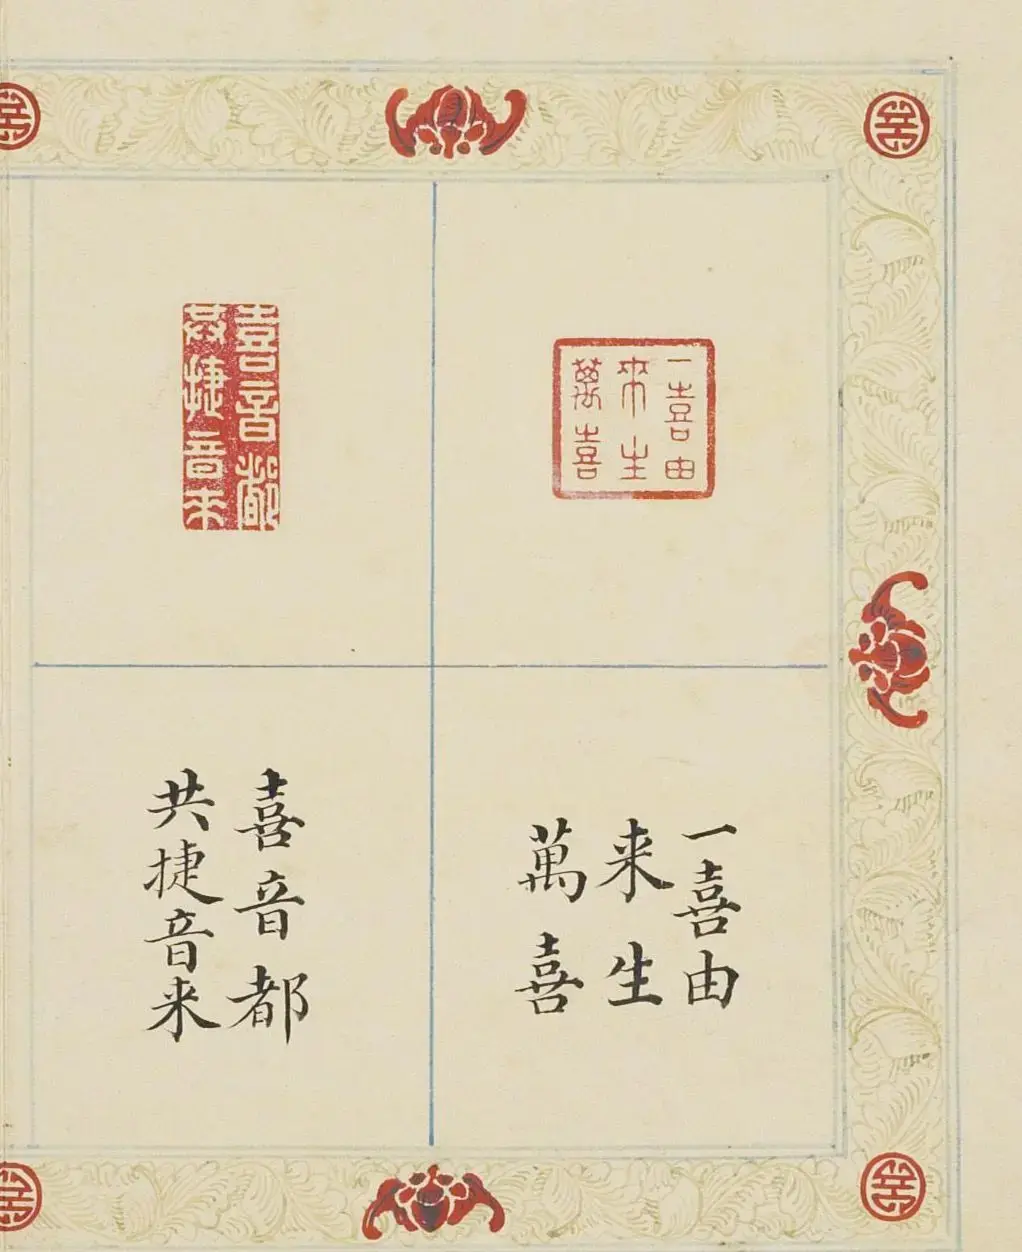 一喜由
来生
萬喜
喜音都
共捷音来
一喜由
来生
萬喜
喜音都
共捷音来